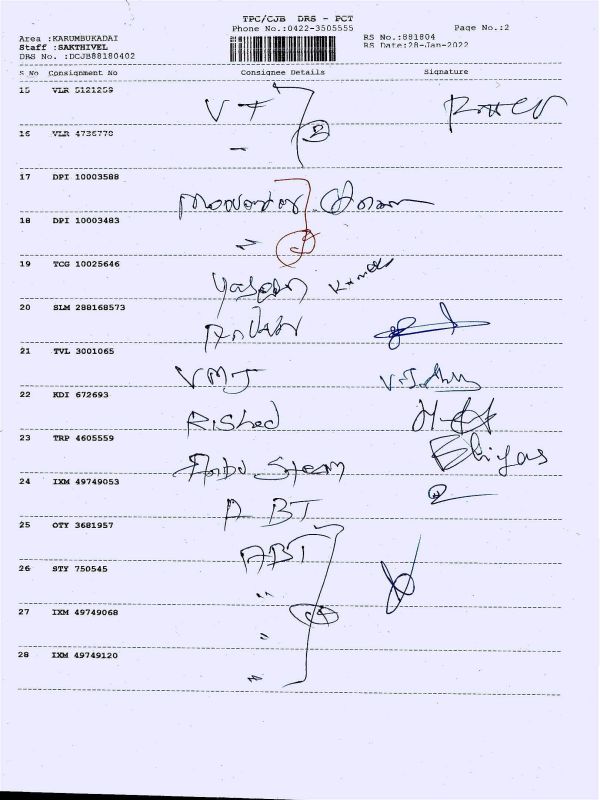 TPC/CJB DRS - PCT
Phone No.:0422-3505555 Page No.:2
Area :KARUMBUKADAI RS No.:881804
Staff :SAKTHIVEL RS Date:28-Jan-2022
DRS No. :DCJB88180402
S No Consignment No Consignee Details Signature
15 VLR 5121259
VT
16 VLR 4736770
17 DPI 10003588
18 DPI 10003483
19 TCG 10025646
Yaseen
20 SLM 288168573
21 TVL 3001065
VMJ
22 KDI 672693
Rished
23 TRP 4605559
Anbu Steem Ehiyas
24 IXM 49749053
ABT
25 OTY 3681957
ABT
26 STY 750545
27 IXM 49749068
28 IXM 49749120